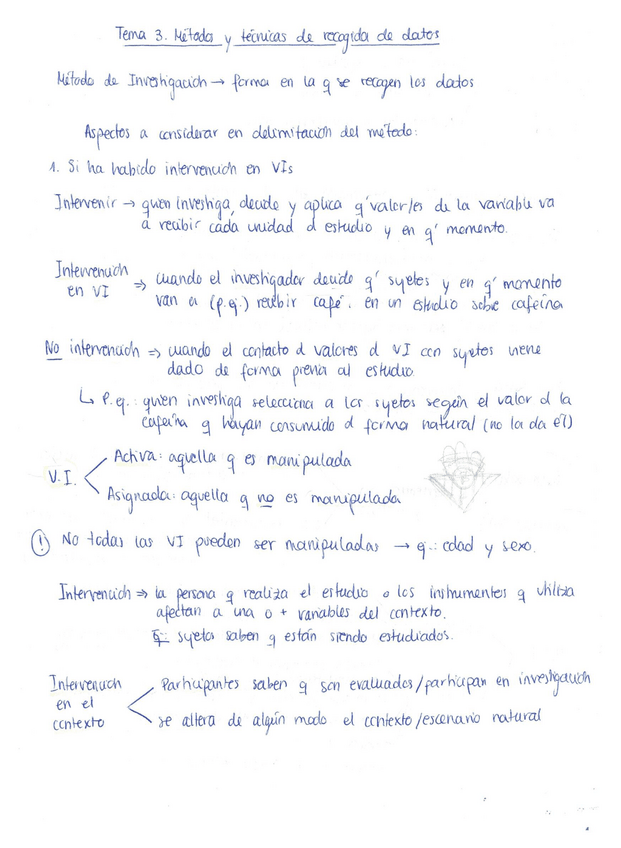 Tema 3. Métodos y técnicas de recogida de datos
Método de Investigación → forma en la q se recogen los datos
Aspectos a considerar en delimitación del método:
1. Si ha habido intervención en VIs
Intervenir → quien investiga, decide y aplica q' valor/es de la variable va
a recibir cada unidad d estudio y en q' momento.
Intervención en VI ⇒ cuando el investigador decide q' sujetos y en q' momento
van a (p.ej.) recibir café. en un estudio sobre cafeína
No intervención ⇒ cuando el contacto d valores d VI con sujetos viene
dado de forma previa al estudio.
↳ P.ej.: quien investiga selecciona a los sujetos según el valor d la
cafeína q hayan consumido d forma natural (no la da él)
V.I. < Activa: aquella q es manipulada
Asignada: aquella q no es manipulada
! No todas las VI pueden ser manipuladas → ej.: edad y sexo.
Intervención ⇒ la persona q realiza el estudio o los instrumentos q utiliza
afectan a una o + variables del contexto.
Ej: sujetos saben q están siendo estudiados.
Intervención en el contexto < Participantes saben q son evaluados/participan en investigación
se altera de algún modo el contexto/escenario natural